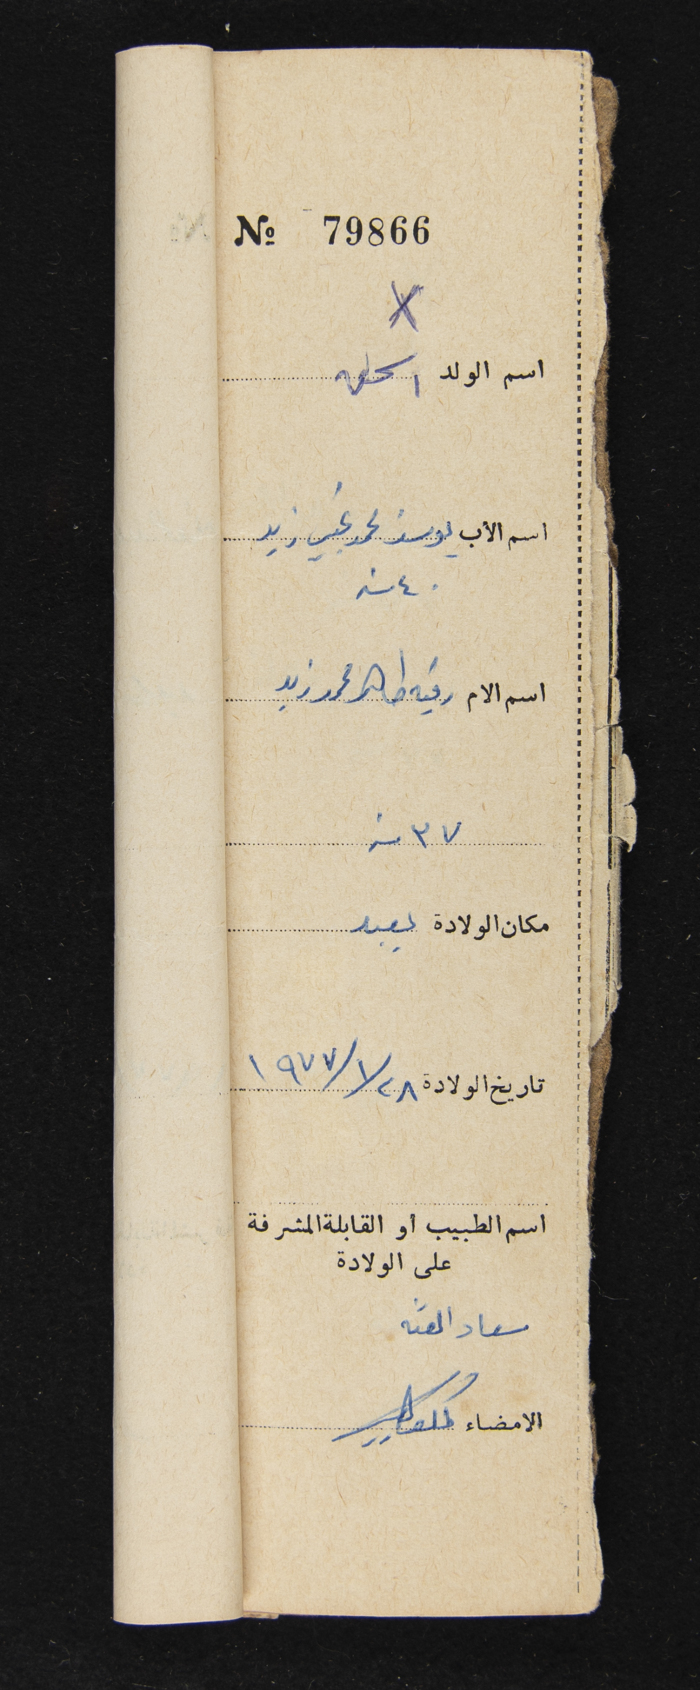 № 79866
X
اسم الولد
اسم الأب يوسف محمد زيد
٤٠ سنه
اسم الام رقيه طاهر محمد زيد
٣٧ سنه
مكان الولادة يعبد
تاريخ الولادة ٢٨/٧/١٩٧٧
اسم الطبيب أو القابلة المشرفة
على الولادة
سعاد
الامضاء